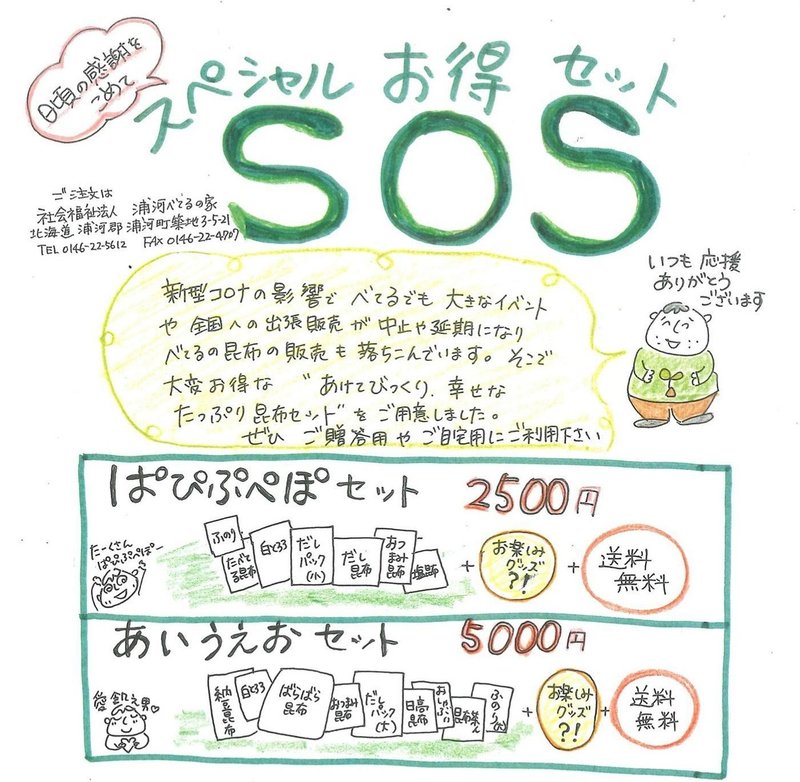 日頃の感謝を
こめて
スペシャル お得 セット
SOS
ご注文は
社会福祉法人 浦河べてるの家
北海道 浦河郡 浦河町築地3-5-21
TEL 0146-22-5612 FAX 0146-22-4707
いつも応援
ありがとう
ございます
新型コロナの影響で べてるでも 大きなイベント
や 全国への出張販売が 中止や延期になり
べてるの昆布の販売も 落ちこんでいます。そこで
大変お得な "あけてびっくり、幸せな
たっぷり昆布セット"を ご用意しました。
ぜひ ご贈答用や ご自宅用にご利用下さい
ぱぴぷぺぽセット 2500円
たーくさん
ぱぴぷぺぽー
ふのり
たべて
る昆布
白とろろ
だし
パック
(小)
だし
昆布
おつ
まみ
昆布
塩昆布
+
お楽しみ
グッズ
?!
+
送料
無料
あいうえおセット 5000円
納豆昆布
白とろろ
ばらばら
昆布
おつまみ
昆布
だし
パック
(大)
日高
昆布
おしゃぶり
昆布茶
ふのり(大)
+
お楽しみ
グッズ
?!
+
送料
無料